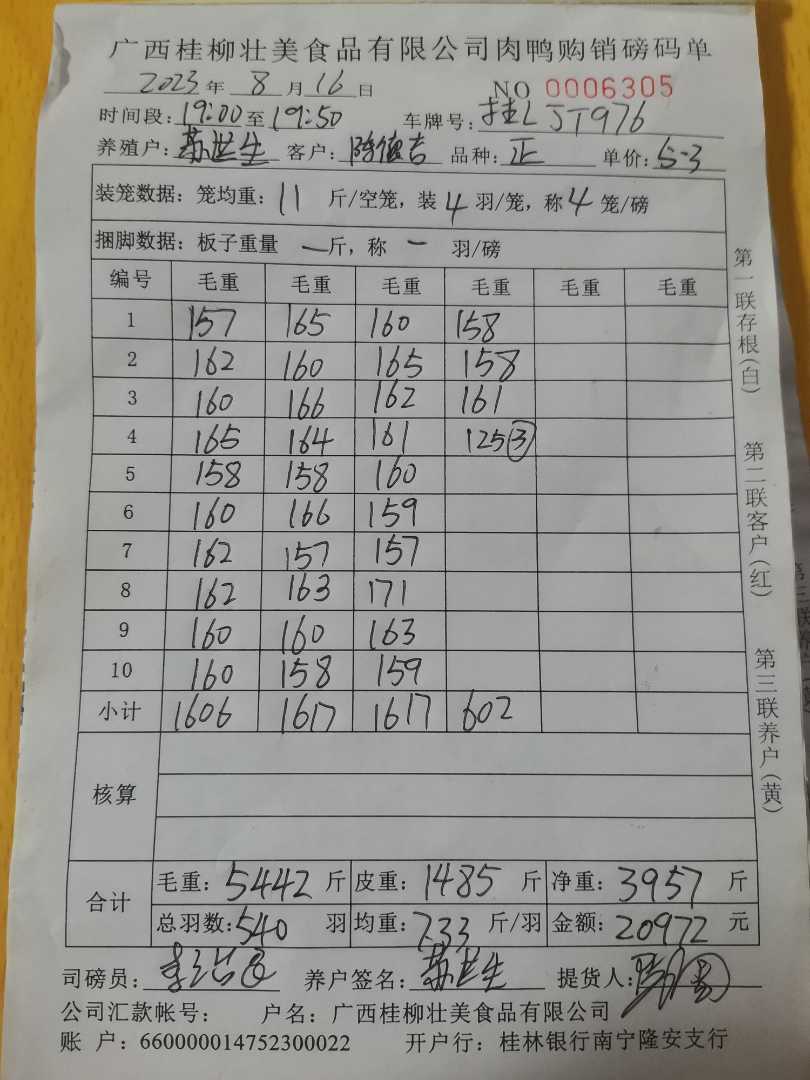 广西桂柳壮美食品有限公司肉鸭购销磅码单
2023 年 8 月 16 日 NO 0006305
时间段: 19:00 至 19:50 车牌号: 桂L JT976
养殖户: 苏世生 客户: 陈德吉 品种: 正 单价: 5.3
装笼数据: 笼均重: 11 斤/空笼, 装 4 羽/笼, 称 4 笼/磅
捆脚数据: 板子重量 一 斤, 称 一 羽/磅
编号 毛重 毛重 毛重 毛重 毛重 毛重
1 157 165 160 158
2 162 160 165 158
3 160 166 162 161
4 165 164 161 125③
5 158 158 160
6 160 166 159
7 162 157 157
8 162 163 171
9 160 160 163
10 160 158 159
小计 1606 1617 1617 602
核算
合计
毛重: 5442 斤 皮重: 1485 斤 净重: 3957 斤
总羽数: 540 羽 均重: 7.33 斤/羽 金额: 20972 元
司磅员: 养户签名: 苏世生 提货人:
公司汇款帐号: 户名: 广西桂柳壮美食品有限公司
账 户: 660000014752300022 开户行: 桂林银行南宁隆安支行
第一联存根(白)
第二联客户(红)
第三联养户(黄)